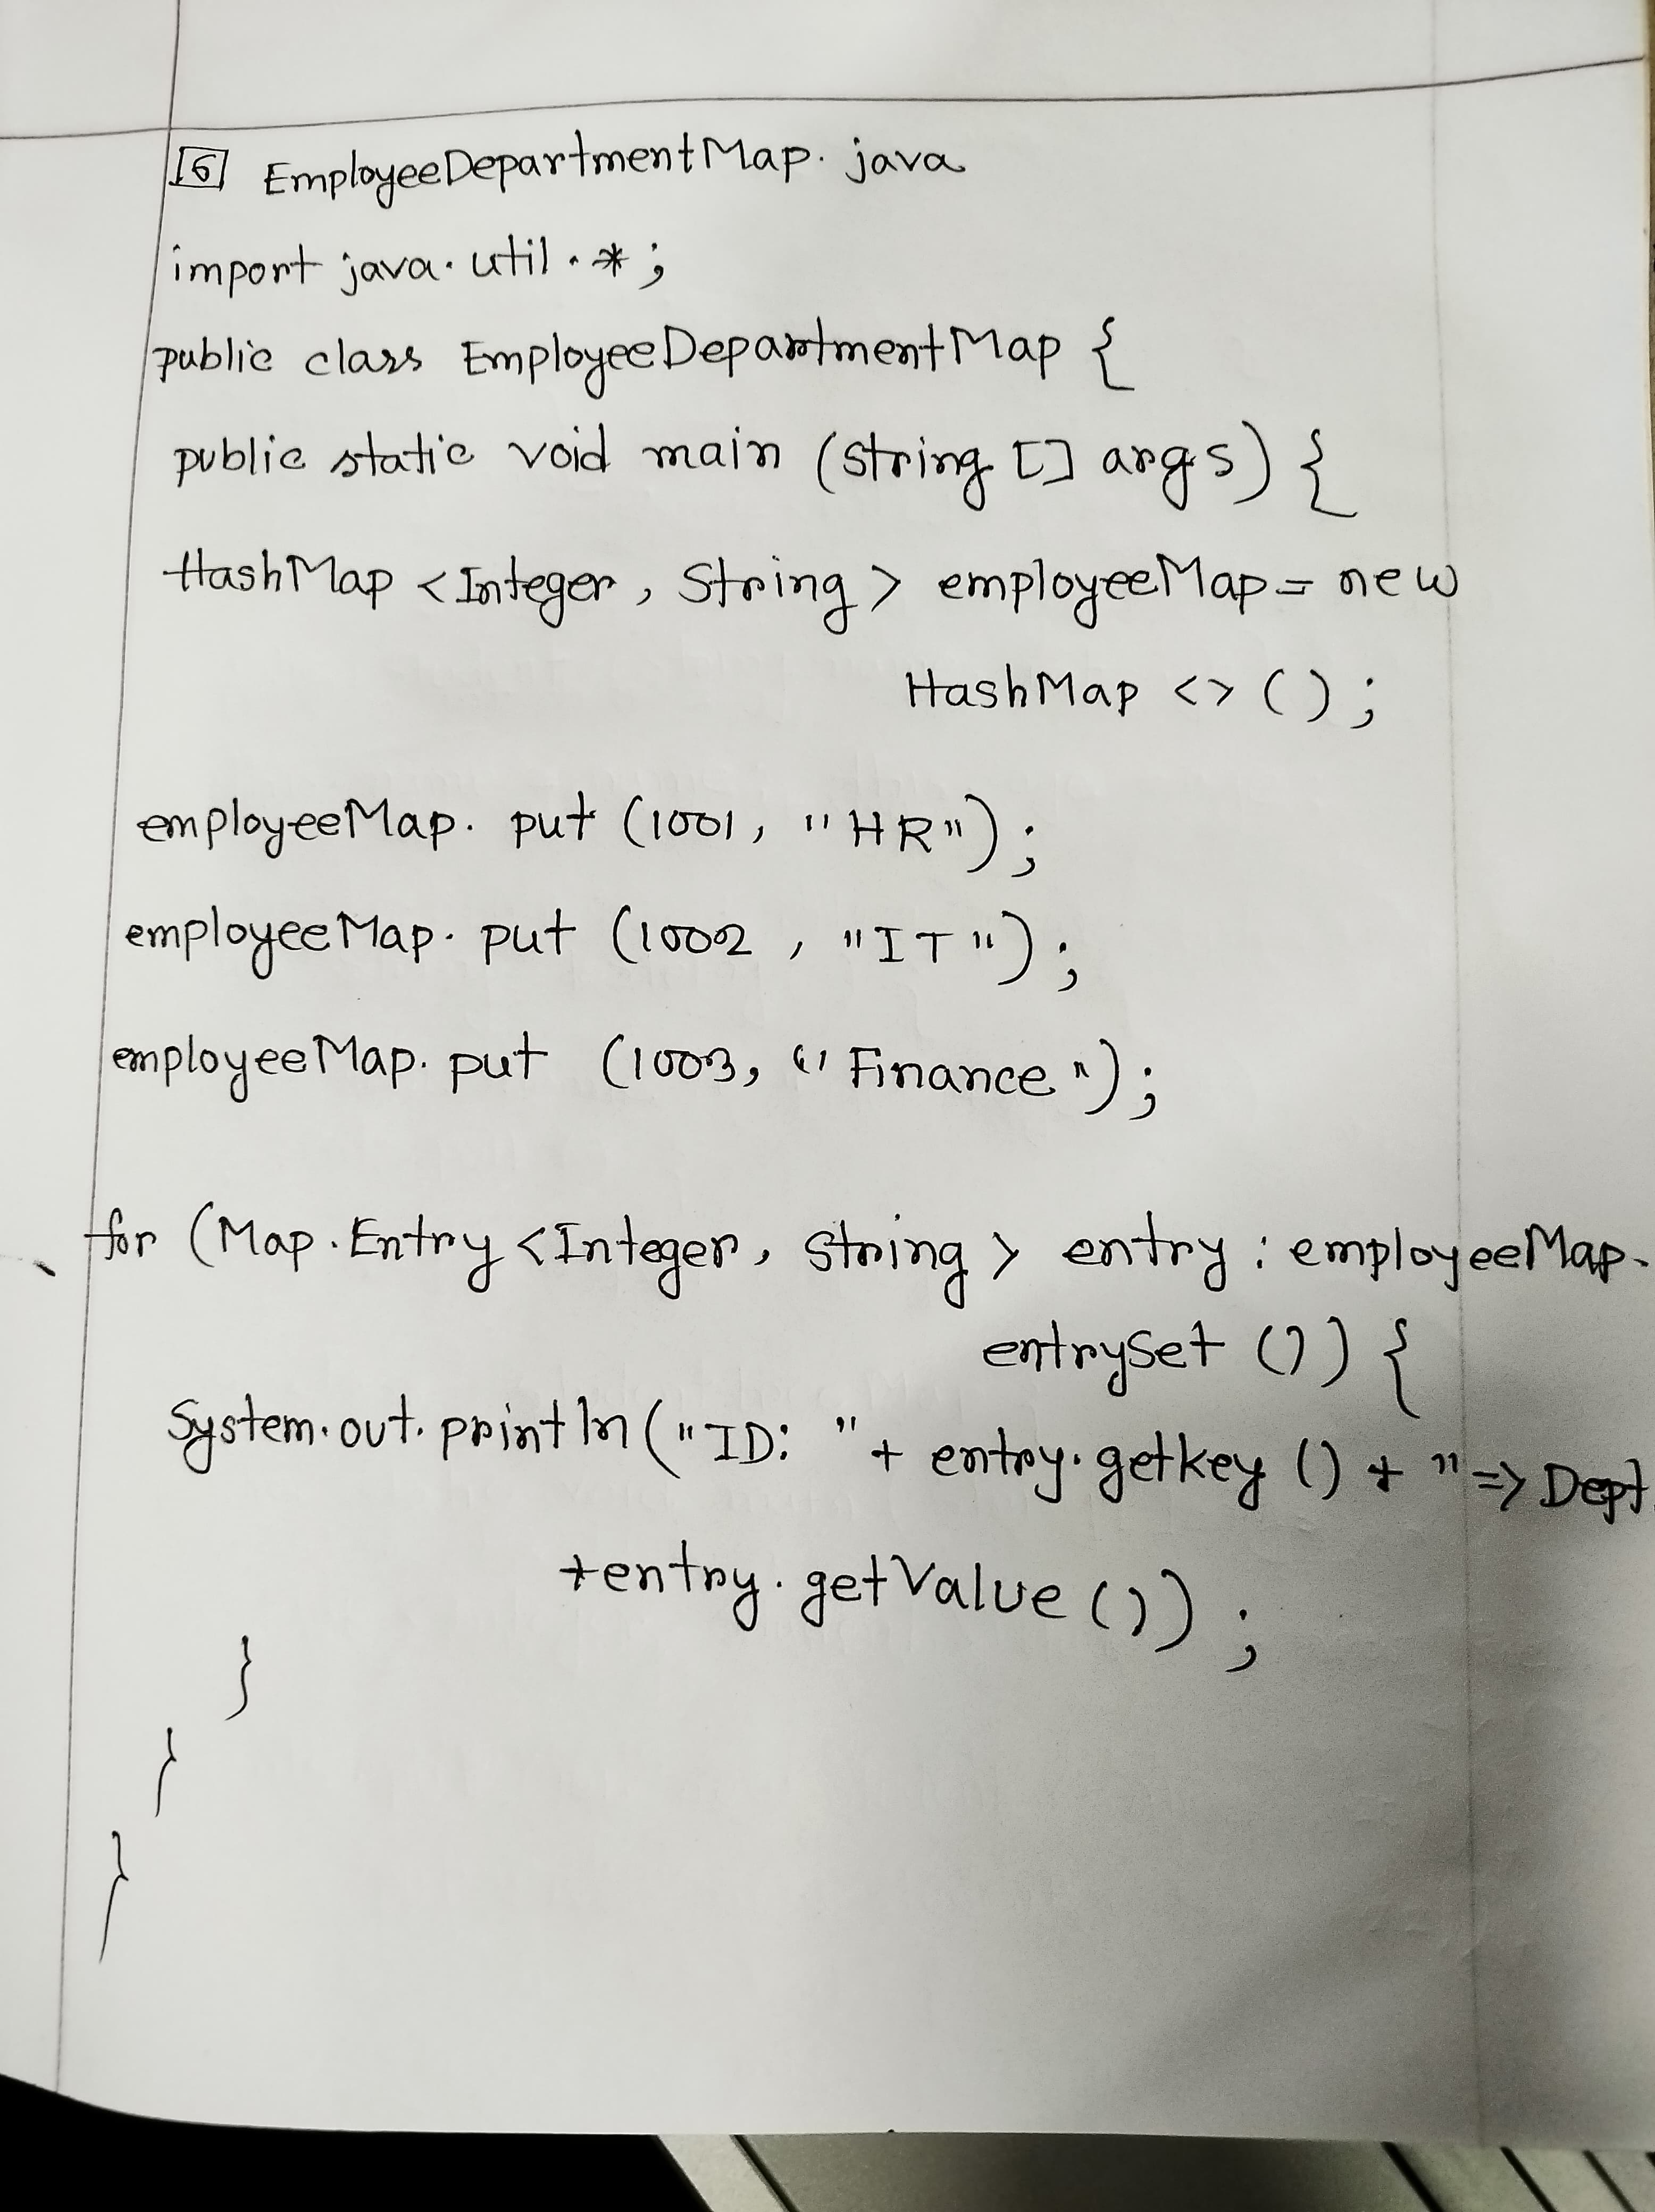 6 EmployeeDepartmentMap. java
import java. util . * ;
public class EmployeeDepartmentMap {
public static void main (String [] args) {
HashMap <Integer, String> employeeMap = new
HashMap <> () ;
employeeMap. put (1001, "HR") ;
employeeMap. put (1002 , "IT") ;
employeeMap. put (1003, "Finance") ;
for (Map. Entry <Integer, String> entry : employeeMap.
entrySet ()) {
System.out.println ("ID: " + entry.getkey () + " => Dept
+entry.getValue ()) ;
}
}
}